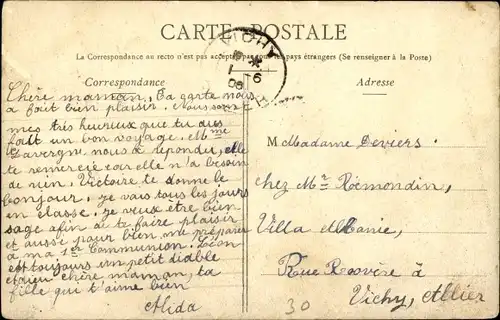 CARTE POSTALE
La Correspondance au recto n'est pas acceptée par tous les pays étrangers (Se renseigner à la Poste)
VICHY
6
08
Correspondance
Chère maman, Ta carte nous
a fait bien plaisir. Nous som
mes très heureux que tu aies
fait un bon voyage. Mme
Lavergne nous a répondu, elle
te remercie car elle n'a besoin
de rien. Victoire te donne le
bonjour. Je vais tous les jours
en classe. Je veux être bien
sage afin de te faire plaisir
et aussi pour bien me préparer
à ma 1ère Communion. Léon
est toujours un petit diable
Adieu chère maman, ta
fille qui t'aime bien
Alida
Adresse
Madame Deviers
chez Mr Rémondin,
Villa Manie,
Rue à
Vichy, Allier
30